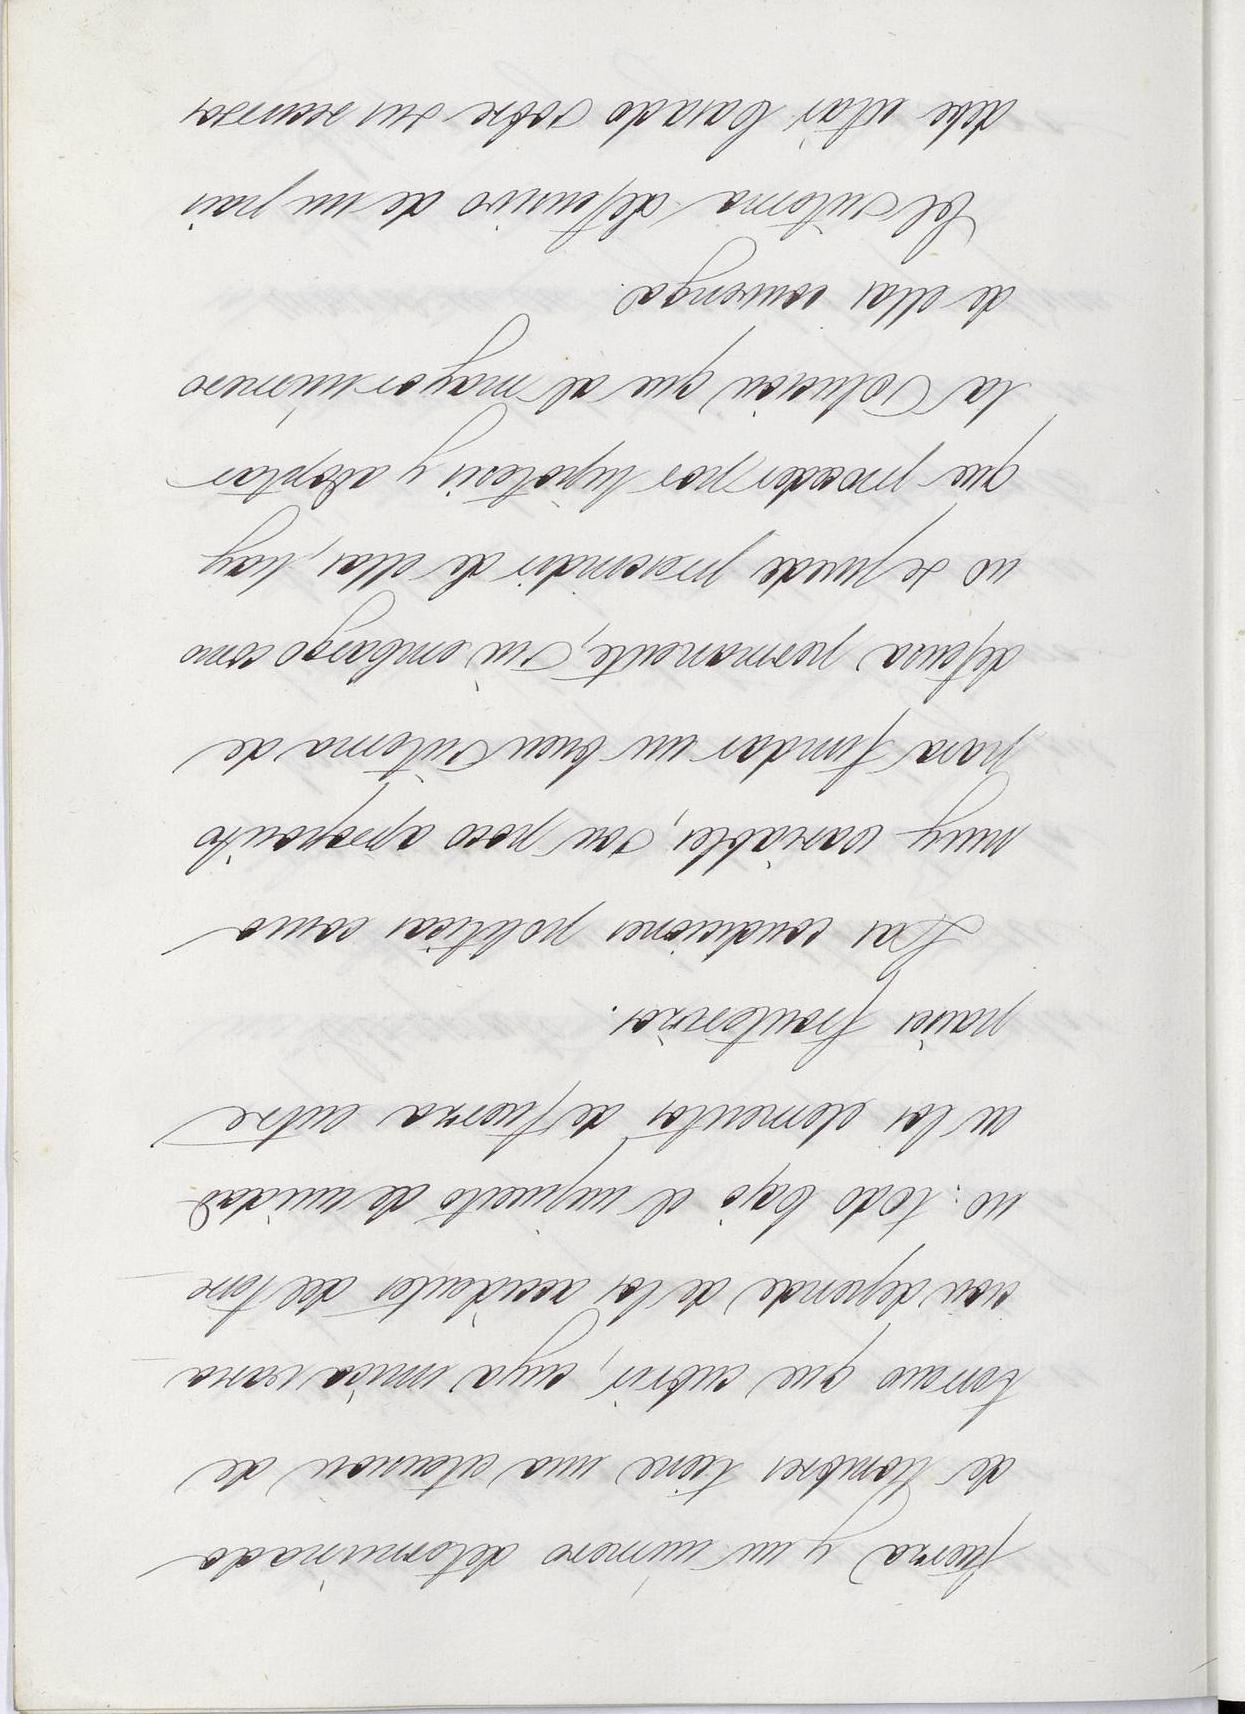 fuerza y un número determinado
de hombres tiene una estension de
terreno que cubrir, cuya única varia
cion depende de los accidentes del terre
no: todo bajo el supuesto de unidad
en los elementos de fuerza entre
paises fronterizos.
Las condiciones politicas como
muy variables, son poco aproposito
para fundar un buen sistema de
defensa permanente, sin embargo como
no se puede prescindir de ellas, hay
que proceder por hipotesis y adoptar
la solucion que al mayor número
de ellas convenga.
El sistema defensivo de un pais
debe estar basado sobre sus recursos